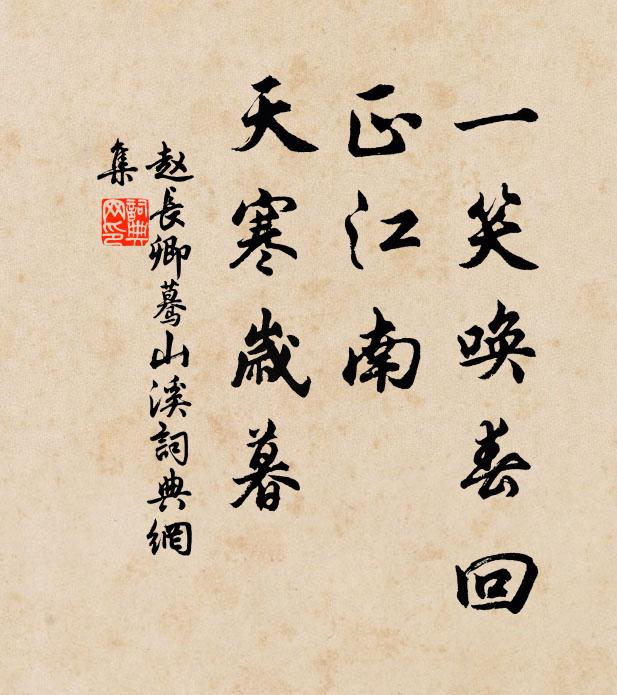 一笑喚春回
正江南
天寒歲暮
赵長卿驀山溪詞典網
集
詞典
网印